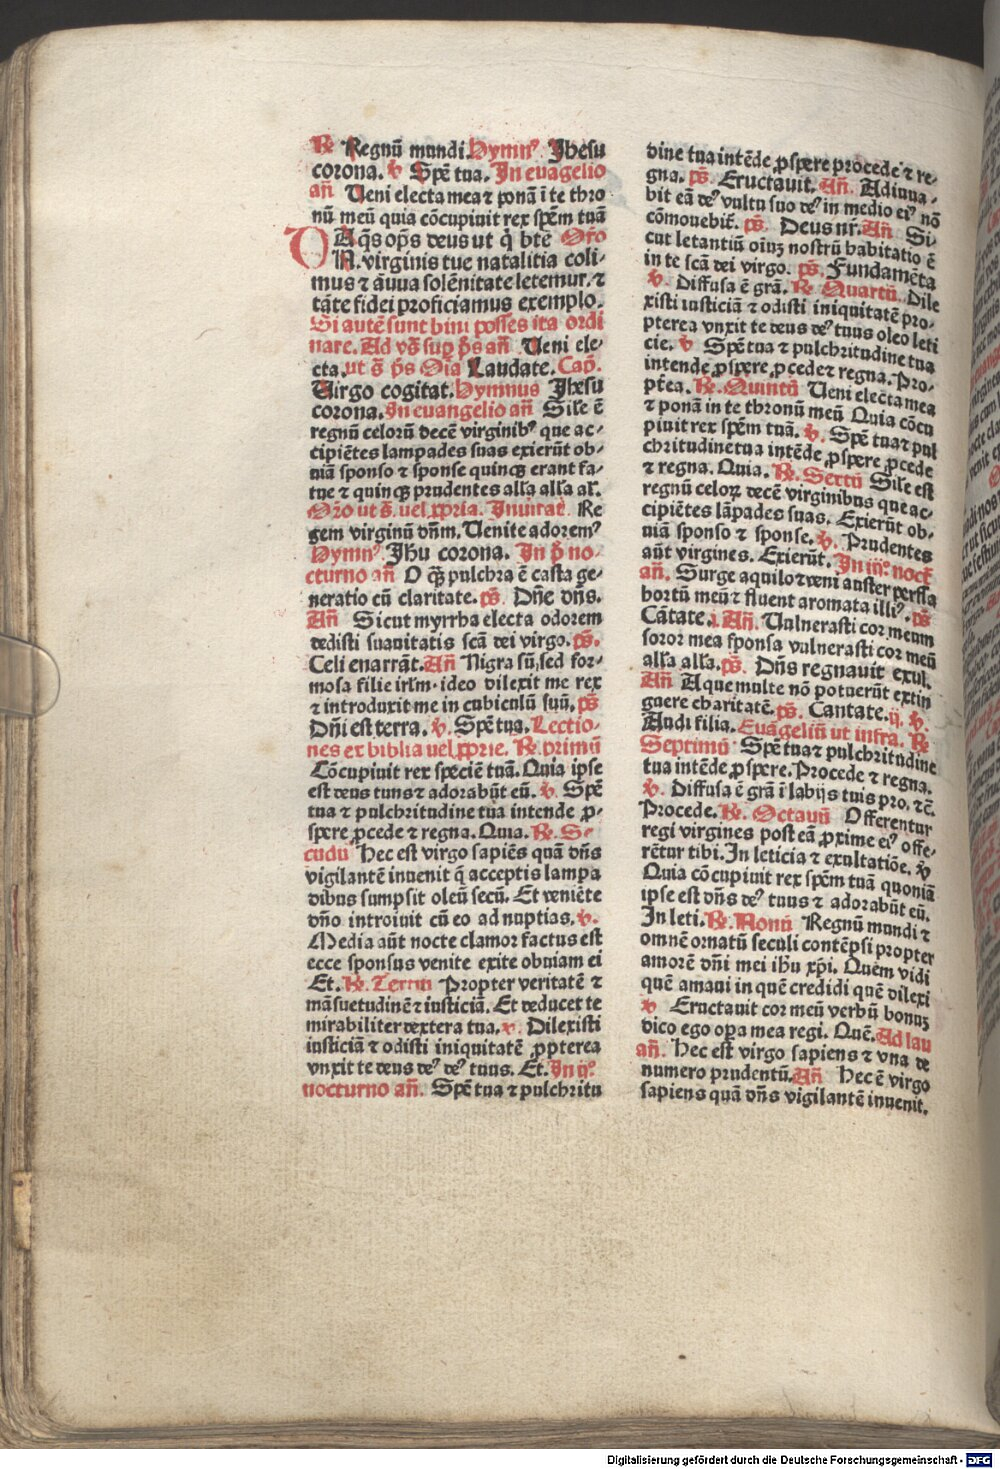 ℟ Regnū mundi. Hymnꝰ Jhesu
corona. ℣ Spē tua. In euagelio
an̄ Ueni electa mea ⁊ ponā ī te thro
nū meū quia cōcupiuit rex spēm tuā
DA q̄s op̄s deus ut q̄ bt̄e Or̄o
N. virginis tue natalitia coli-
mus ⁊ ānua solēnitate letemur. ⁊
tāte fidei proficiamus exemplo.
Si autē sunt bini posses ita ordi
nare. Ad vs̄ sup p̄s an̄ Ueni ele-
cta. ut s̄ p̄s Oīa Laudate. Cap̄.
Uirgo cogitat. Hymnus Jhesu
corona. In euangelio an̄ Sil̄e ē
regnū celorū decē virginibꝰ que ac-
cipiētes lampades suas exierūt ob-
uiā sponso ⁊ sponse quinqꝫ erant fa-
tue ⁊ quinqꝫ prudentes all̄a all̄a al̄.
Or̄o ut s̄. uel ꝓpria. Inuitat̄. Re
gem virginū dn̄m. Uenite adoremꝰ
Hymnꝰ. Jhu corona. In p̄ no-
cturno an̄ O qꝫ pulchra ē casta ge-
neratio cū claritate. ps̄. Dn̄e dn̄s.
An̄ Sicut myrrha electa odorem
dedisti suauitatis scā dei virgo. ps̄.
Celi enarrāt. An̄ Nigra sū, sed for-
mosa filie irl̄m. ideo dilexit me rex
⁊ introduxit me in cubiculū suū, ps̄
Dn̄i est terra. ℣. Spē tua. Lectio-
nes ex biblia uel ꝓprie. ℟. primū
Cōcupiuit rex speciē tuā. Quia ipse
est deus tuus ⁊ adorabūt eū. ℣. Spē
tua ⁊ pulchritudine tua intende ꝓ-
spere ꝓcede ⁊ regna. Quia. ℟. Se-
cūdū Hec est virgo sapiēs quā dn̄s
vigilantē inuenit q̄ acceptis lampa
dibus sumpsit oleū secū. Et veniēte
dn̄o introiuit cū eo ad nuptias. ℣.
Media aūt nocte clamor factus est
ecce sponsus venite exite obuiam ei
Et. ℟. Tertiū Propter veritatē ⁊
māsuetudinē ⁊ iusticiā. Et deducet te
mirabiliter dextera tua. ℣. Dilexisti
iusticiā ⁊ odisti iniquitatē ꝓpterea
vnxit te deus deꝰ deꝰ tuus. Et. In ijº
nocturno an̄. Spē tua ⁊ pulchritu
dine tua intēde ꝓspere procede ⁊ re-
gna. ps̄. Eructauit. An̄. Adiuua-
bit eā deꝰ vultu suo deꝰ in medio eiꝰ nō
cōmouebit̄. ps̄. Deus nr̄. An̄ Si-
cut letantiū oīuꝫ nostrū habitatio ē
in te scā dei virgo. ps̄. Fundamēta
℣. Diffusa ē grā. ℟ Quartū. Dile
xisti iusticiā ⁊ odisti iniquitatē pro-
pterea vnxit te deus deꝰ tuus oleo leti
cie. ℣ Spē tua ⁊ pulchritudine tua
intende ꝓspere ꝓcede ⁊ regna. Pro-
pt̄ea. ℟. Quintū Ueni electa mea
⁊ ponā in te thronū meū Quia cōcu
piuit rex spēm tuā. ℣. Spē tua ⁊ pul
chritudine tua intēde ꝓspere ꝓcede
⁊ regna. Quia. ℟. Sextū Sil̄e est
regnū celoꝝ decē virginibus que ac-
cipiētes lāpades suas. Exierūt ob-
uiā sponso ⁊ sponse. ℣. Prudentes
aūt virgines. Exierūt. In iijº noct̄
an̄. Surge aquilo ⁊ veni auster perfla
hortū meū ⁊ fluent aromata illiꝰ. ps̄
Cātate. i. An̄. Uulnerasti cor meum
soror mea sponsa vulnerasti cor meū
all̄a all̄a. ps̄. Dn̄s regnauit exul.
An̄ Aque multe nō potuerūt extin
guere charitatē. ps̄. Cantate. ij. ℣.
Audi filia. Euāgeliū ut infra. ℟
Septimū Spē tua ⁊ pulchritudine
tua intēde ꝓspere. Procede ⁊ regna.
℣. Diffusa ē grā ī labijs tuis pro. ⁊c̄.
Procede. ℟. Octauū Offerentur
regi virgines post eā ꝓxime eiꝰ offe-
rētur tibi. In leticia ⁊ exultatiōe. ℣
Quia cōcupiuit rex spēm tuā quoniā
ipse est dn̄s deꝰ tuus ⁊ adorabūt eū.
In leti. ℟. Nonū Regnū mundi ⁊
omnē ornatū seculi contēpsi propter
amorē dn̄i mei ihū xp̄i. Quem vidi
quē amaui in quē credidi quē dilexi
℣ Eructauit cor meū verbū bonuꝫ
dico ego opa mea regi. Quē. Ad lau
an̄. Hec est virgo sapiens ⁊ vna de
numero prudentū. An̄ Hec ē virgo
sapiens quā dn̄s vigilantē inuenit.
Digitalisierung gefördert durch die Deutsche Forschungsgemeinschaft - DFG